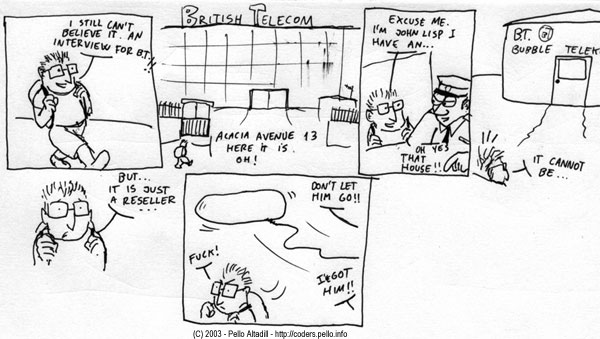 I STILL CAN'T
BELIEVE IT. AN
INTERVIEW FOR B.T.
!!
BRITISH TELECOM
ACACIA AVENUE 13
HERE IT IS.
OH!
EXCUSE ME.
I'M JOHN LISP I
HAVE AN...
OH YES
THAT
HOUSE!!
B.T.
BUBBLE TELEK
IT CANNOT
BE...
BUT...
IT IS JUST
A RESELLER
...
DON'T LET
HIM GO!!
FUCK!
I'VE GOT
HIM!!
(C) 2003 - Pello Altadill - http://coders.pello.info